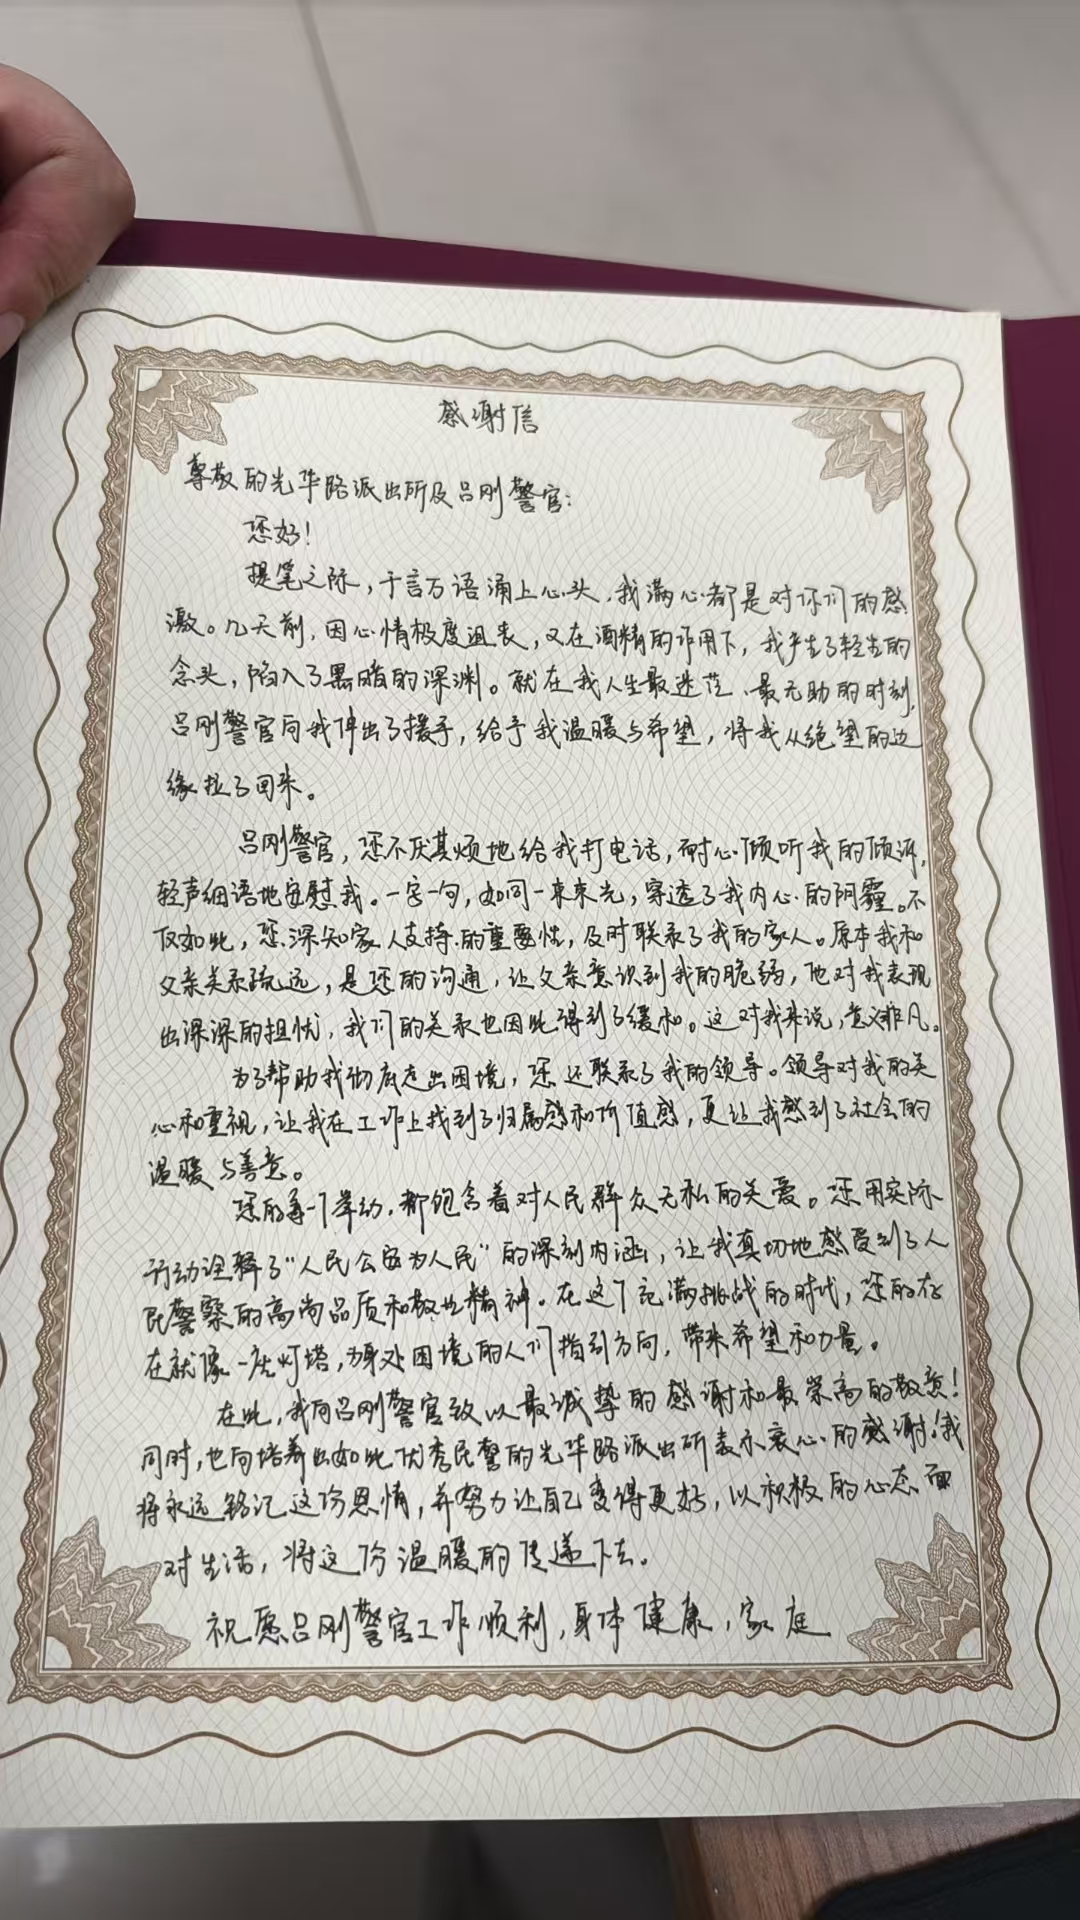 感谢信
尊敬的光华路派出所及吕刚警官：
您好！
提笔之际，千言万语涌上心头，我满心都是对你们的感
激。几天前，因心情极度沮丧，又在酒精的作用下，我产生了轻生的
念头，陷入了黑暗的深渊。就在我人生最迷茫、最无助的时刻，
吕刚警官向我伸出了援手，给予我温暖与希望，将我从绝望的边
缘拉了回来。
吕刚警官，您不厌其烦地给我打电话，耐心倾听我的倾诉，
轻声细语地安慰我。一字一句，如同一束束光，穿透了我内心的阴霾。不
仅如此，您深知家人支持的重要性，及时联系了我的家人。原本我和
父亲关系疏远，是您的沟通，让父亲意识到我的脆弱，他对我表现
出深深的担忧，我们的关系也因此得到了缓和。这对我来说，意义非凡。
为了帮助我彻底走出困境，您还联系了我的领导。领导对我的关
心和重视，让我在工作上找到了归属感和价值感，更让我感到了社会的
温暖与善意。
您的每一个举动，都饱含着对人民群众无私的关爱。您用实际
行动诠释了“人民公安为人民”的深刻内涵，让我真切地感受到了人
民警察的高尚品质和敬业精神。在这个充满挑战的时代，您的存
在就像一座灯塔，为身处困境的人们指引方向，带来希望和力量。
在此，我向吕刚警官致以最诚挚的感谢和最崇高的敬意！
同时，也向培养出如此优秀民警的光华路派出所表示衷心的感谢！我
将永远铭记这份恩情，并努力让自己变得更好，以积极的心态面
对生活，将这份温暖的传递下去。
祝愿吕刚警官工作顺利，身体健康，家庭